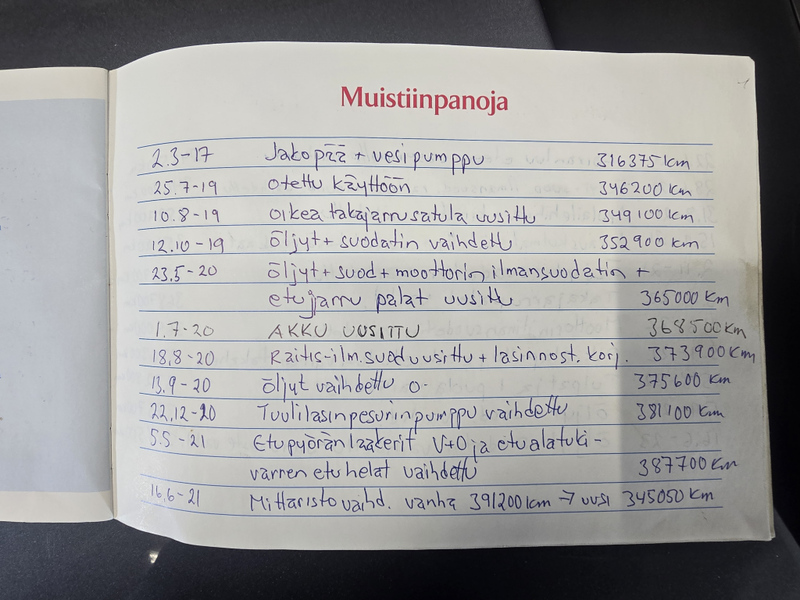 Muistiinpanoja
2.3-17 Jakopää + vesipumppu 316375 km
25.7-19 otettu käyttöön 346200 km
10.8-19 oikea takajarrusatula uusittu 349100 km
12.10-19 öljyt + suodatin vaihdettu 352900 km
23.5-20 öljyt + suod + moottorin ilmansuodatin +
etujarru palat uusittu 365000 km
1.7-20 AKKU UUSITTU 368500 km
18.8-20 Raitis-ilm.suod uusittu + lasinnost. korj. 373900 km
13.9-20 öljyt vaihdettu 375600 km
22.12-20 Tuulilasinpesurin pumppu vaihdettu 381100 km
5.5-21 Etupyörän laakerit V+O ja etualatuki-
varren etuhelat vaihdettu 387700 km
16.6-21 Mittaristo vaihd. vanha 391200 km → uusi 345050 km